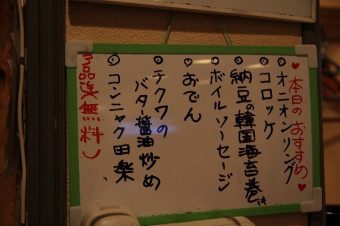 ♥本日のおすすめ♥
オニオンリング
コロッケ
納豆の韓国海苔巻
ボイルソーセージ
おでん
テクワの
バタ醤油炒め
コンニャク田楽
送無料)